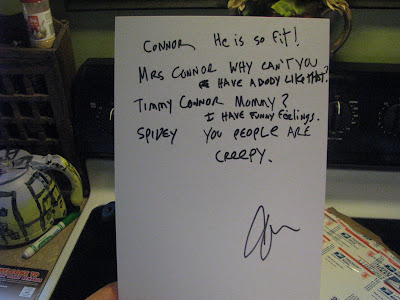 CONNOR He is so Fit!
MRS CONNOR WHY CAN'T YOU
HAVE A BODY LIKE THAT?
TIMMY CONNOR MOMMY?
I HAVE FUNNY FEELINGS.
SPIDEY YOU PEOPLE ARE
CREEPY.